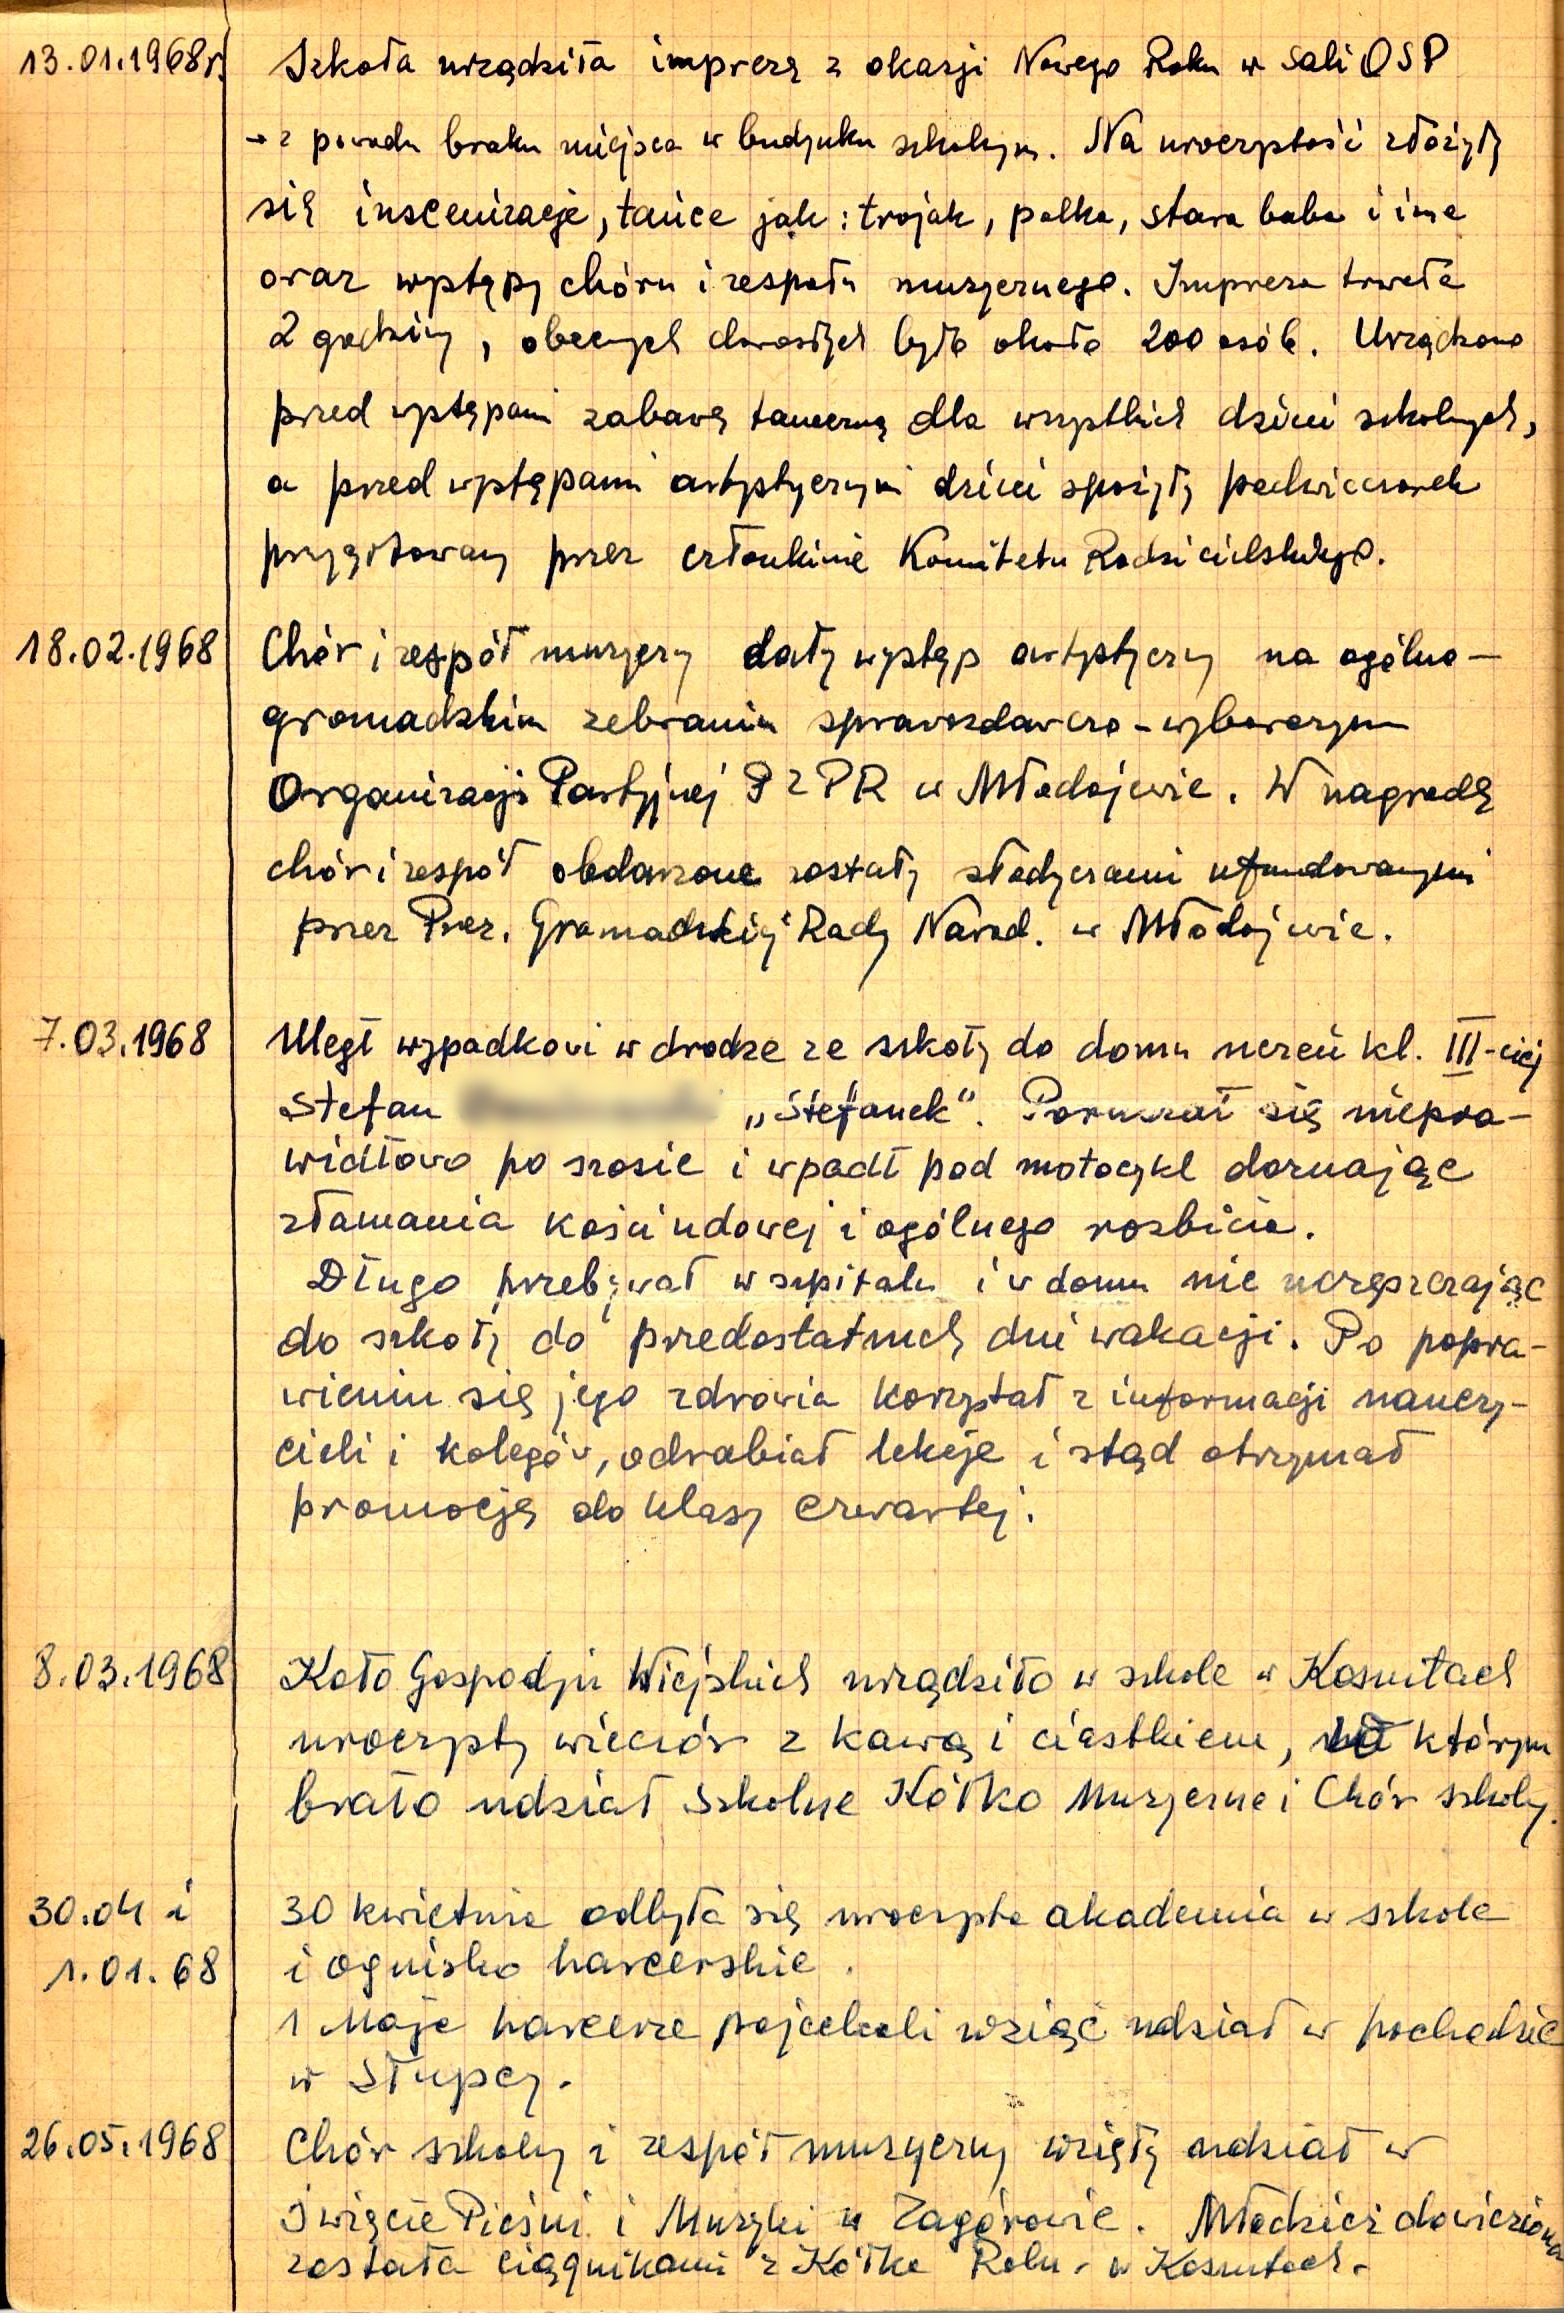 13.01.1968r. Szkoła urządziła imprezę z okazji Nowego Roku w sali OSP
→ z powodu braku miejsca w budynku szkolnym. Na uroczystość złożyły
się inscenizacje, tańce jak: trojak, polka, stara baba i inne
oraz występy chóru i zespołu muzycznego. Impreza trwała
2 godziny, obecnych dorosłych było około 200 osób. Urządzono
przed występami zabawę taneczną dla wszystkich dzieci szkolnych,
a przed występami artystycznymi dzieci spożyły podwieczorek
przygotowany przez członkinie Komitetu Rodzicielskiego.
18.02.1968 Chór i zespół muzyczny dały występ artystyczny na ogólno-
gromadzkim zebraniu sprawozdawczo-wyborczym
Organizacji Partyjnej PZPR w Młodojewie. W nagrodę
chór i zespół obdarzone zostały słodyczami ufundowanymi
przez Prez. Gromadzkiej Rady Narod. w Młodojewie.
7.03.1968 Uległ wypadkowi w drodze ze szkoły do domu uczeń kl. III-ciej
Stefan „Stefanek". Poruszał się niepra-
widłowo po szosie i wpadł pod motocykl doznając
złamania kości udowej i ogólnego rozbicia.
Długo przebywał w szpitalu i w domu nie uczęszczając
do szkoły do przedostatnich dni wakacji. Po popra-
wieniu się jego zdrowia korzystał z informacji nauczy-
cieli i kolegów, odrabiał lekcje i stąd otrzymał
promocję do klasy czwartej.
8.03.1968 Koło Gospodyń Wiejskich urządziło w szkole w Kosewitach
uroczysty wieczór z kawą i ciastkiem, na którym
brało udział Szkolne Kółko Muzyczne i Chór szkolny.
30.04 i 30 kwietnia odbyła się uroczysta akademia w szkole
1.01.68 i ognisko harcerskie.
1 Maja harcerze pojechali wziąć udział w pochodzie
w Słupcy.
26.05.1968 Chór szkolny i zespół muzyczny wzięły udział w
Święcie Pieśni i Muzyki w Zagórowie. Młodzież dowieziona
została ciągnikami z Kółka Roln. w